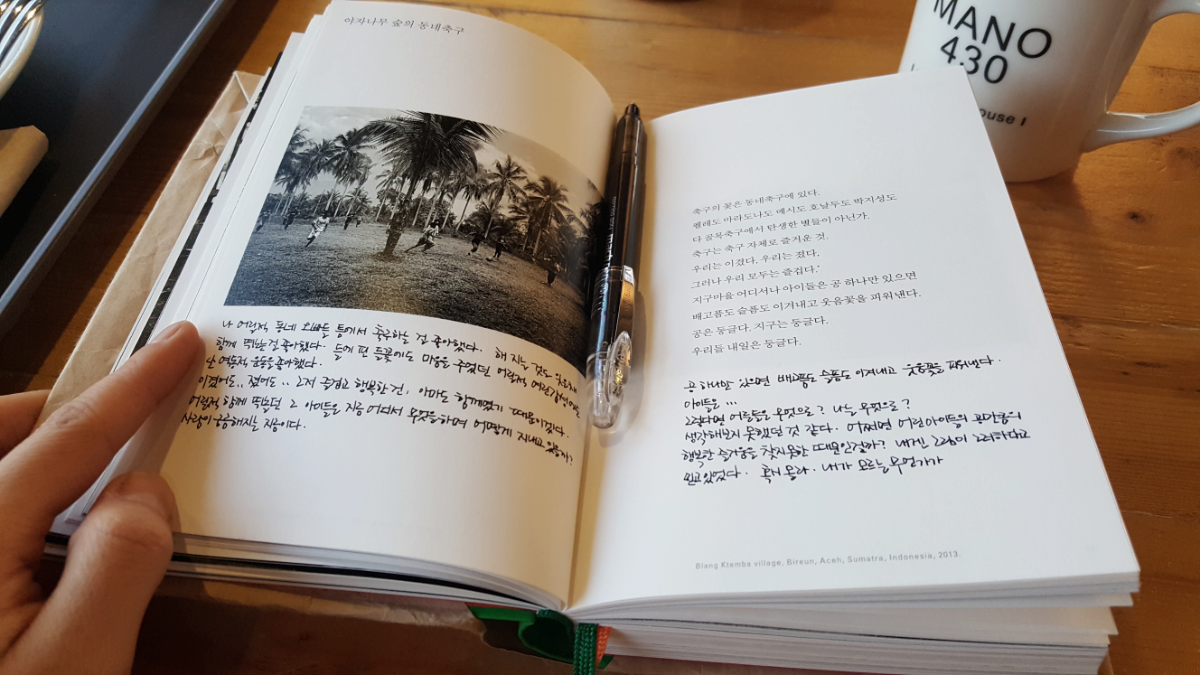 야자나무 숲의 동네축구
나 어릴적 동네 오빠들 틈에서 축구하는 걸 좋아했다. 해 지는 것도
함께 뛰는 걸 좋아했다. 들에 핀 들꽃에도 마음을 주었던 어릴적
난 역동적 운동을 좋아했다.
이겼어도.. 졌어도.. 그저 즐겁고 행복한 건, 아마도 함께였기 때문이겠다.
어릴적 함께 뛰놀던 그 아이들은 지금 어디서 무엇을하며 어떻게 지내고 있을까?
사뭇 궁금해지는 지금이다.
축구의 꽃은 동네축구에 있다.
펠레도 마라도나도 메시도 호날두도 박지성도
다 골목축구에서 탄생한 별들이 아닌가.
축구는 축구 자체로 즐거운 것.
우리는 이겼다. 우리는 졌다.
그러나 우리 모두는 즐겁다."
지구마을 어디서나 아이들은 공 하나만 있으면
배고픔도 슬픔도 이겨내고 웃음꽃을 피워낸다.
공은 둥글다. 지구는 둥글다.
우리들 내일은 둥글다.
공 하나만 있으면 배고픔도 슬픔도 이겨내고 웃음꽃을 피워낸다.
아이들은 ...
그렇다면 어른들은 무엇으로? 나는 무엇으로?
생각해보지 못했던 것 같다. 어쩌면 어린아이들의 공만큼의
행복한 즐거움을 찾지못한 때문인걸까? 내겐 그림이 그러하다고
믿고 있었다. 혹시 몰라. 내가 모르는 무언가가
Blang Ktemba village, Bireun, Aceh, Sumatra, Indonesia, 2013.
MANO
430
ouse I